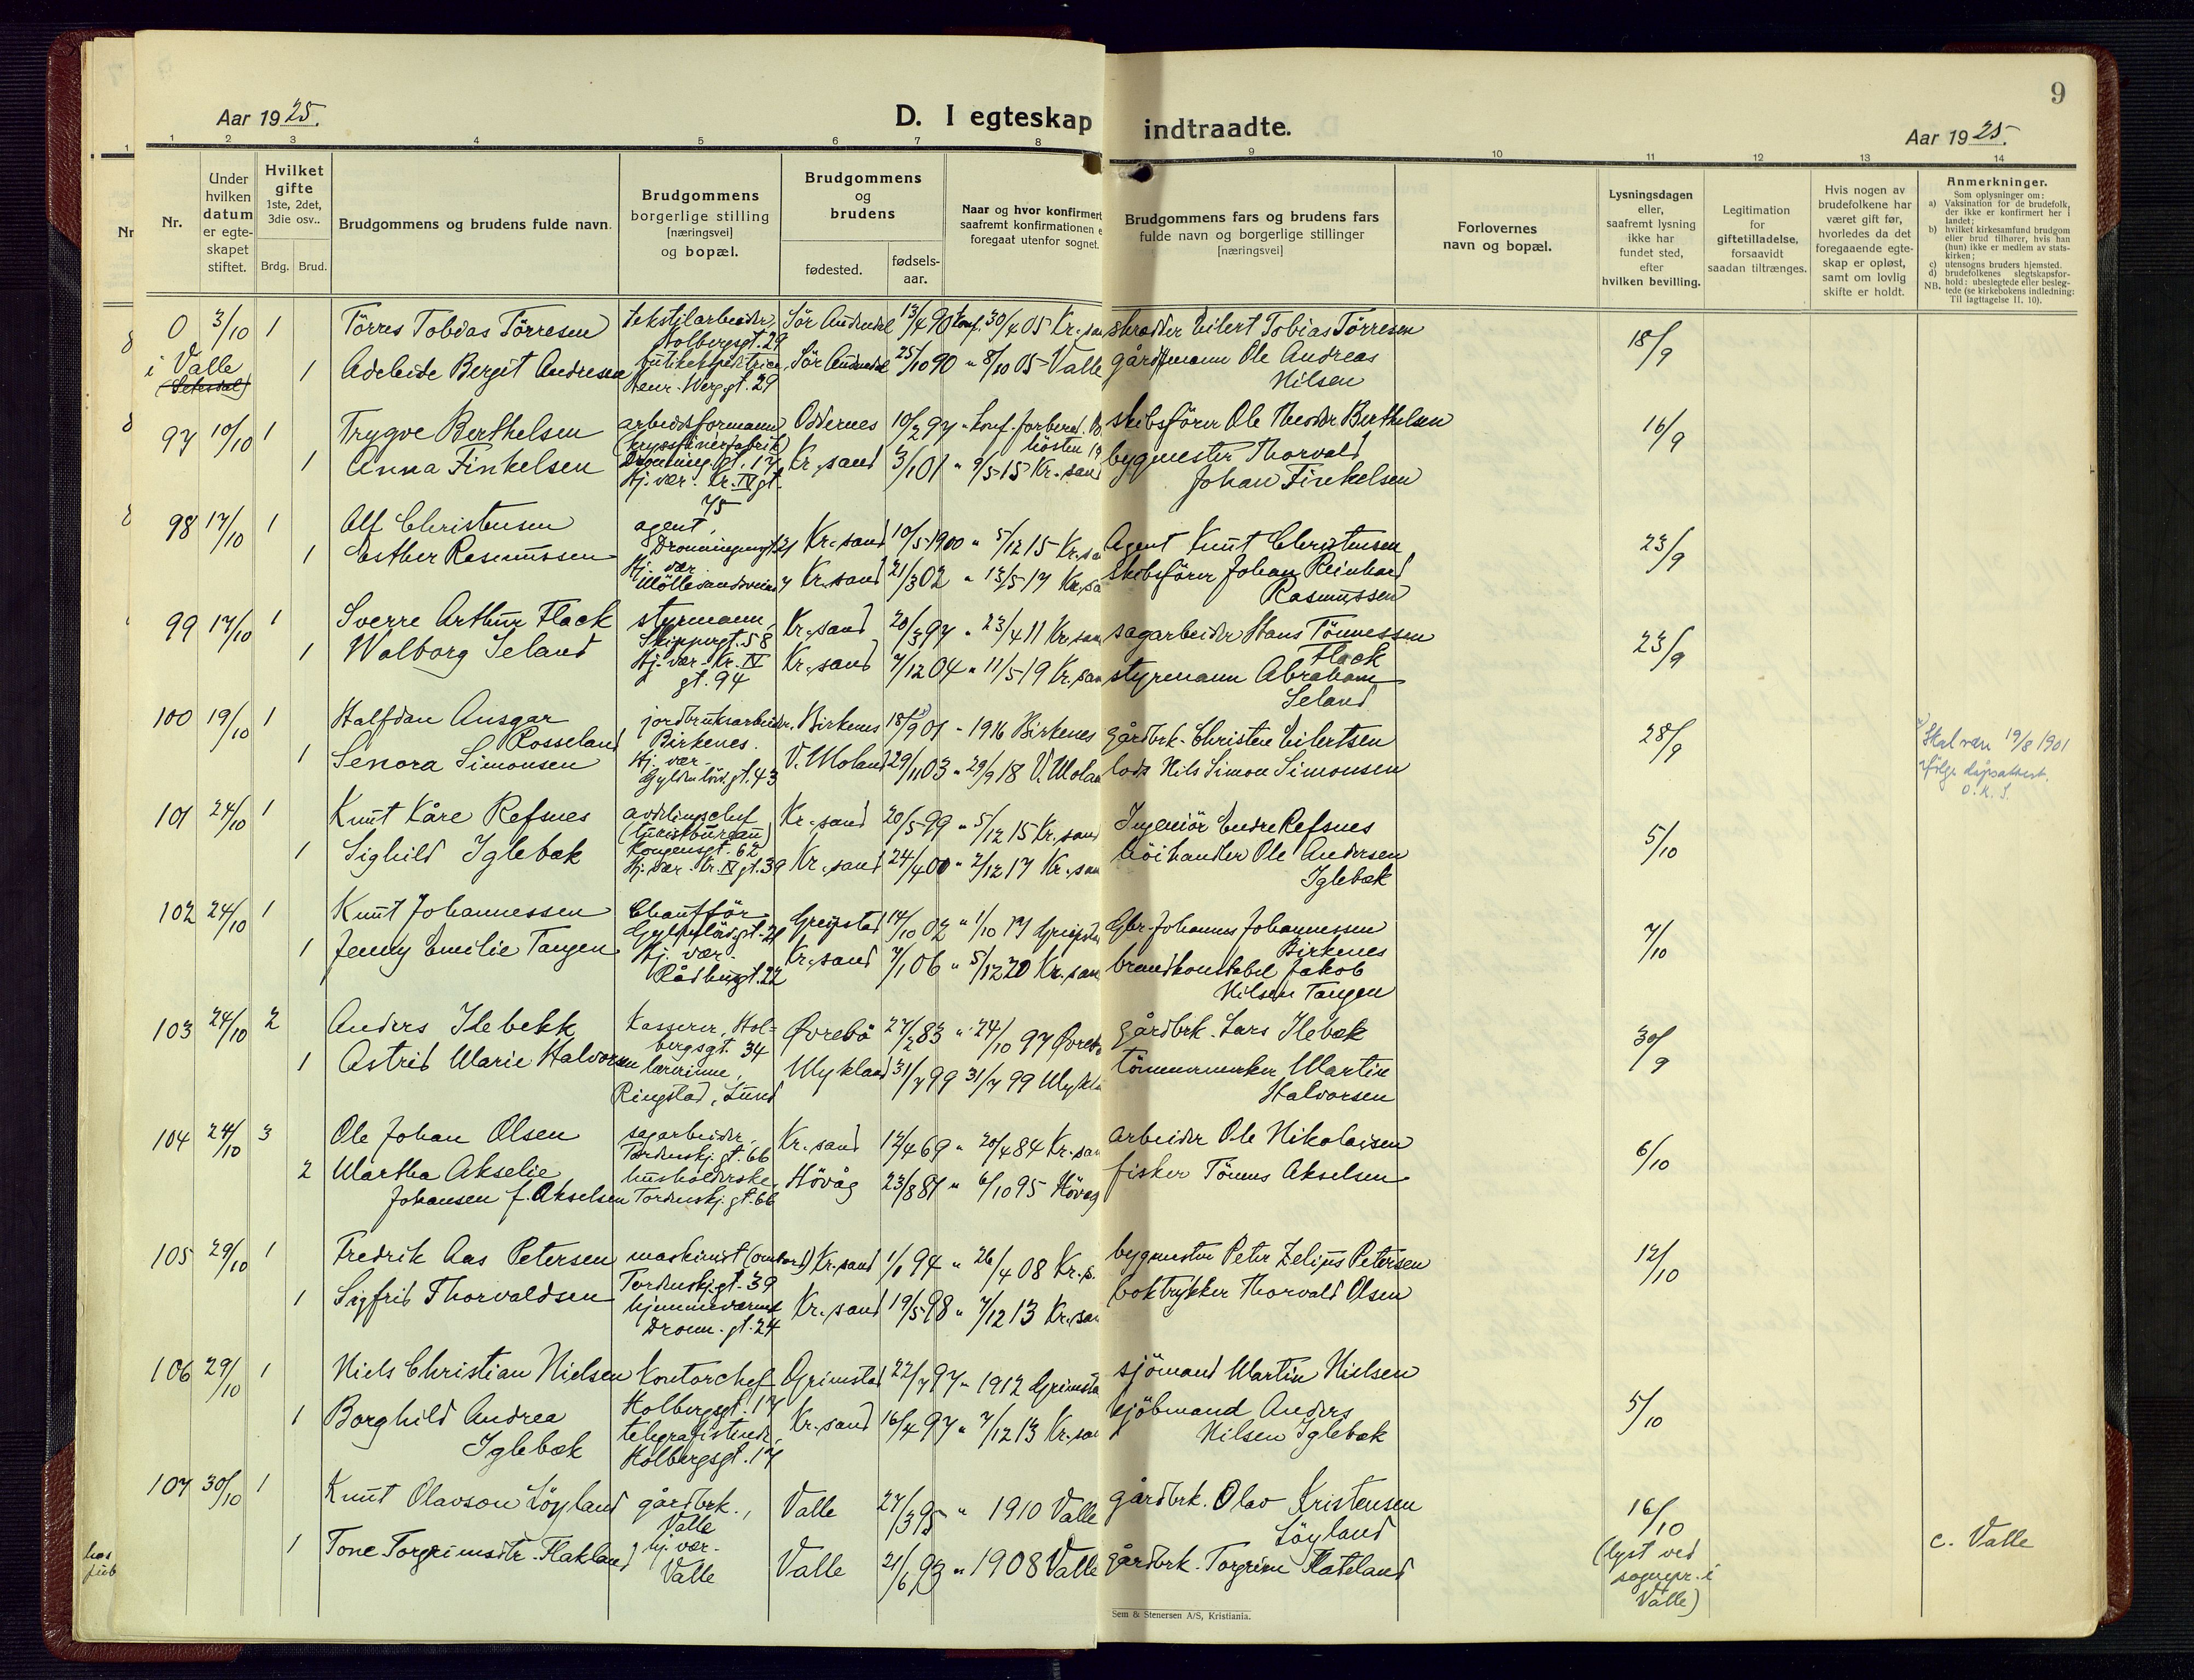 Aar 1925.
D. I egteskap indtraadte.
9
Aar 1925.
1 2 3 4 5 6 7 8 9 10 11 12 13 14
Nr.
Under hvilken datum er egteskapet stiftet.
Hvilket gifte 1ste, 2det, 3die osv..
Brdg. Brud.
Brudgommens og brudens fulde navn.
Brudgommens borgerlige stilling [næringsvei] og bopæl.
Brudgommens og brudens
fødested.
fødselsaar.
Naar og hvor konfirmert
saafremt konfirmationen e
foregaat utenfor sognet.
Brudgommens fars og brudens fars
fulde navn og borgerlige stillinger
[næringsvei]
Forlovernes
navn og bopæl.
Lysningsdagen
eller,
saafremt lysning
ikke har
fundet sted,
efter
hvilken bevilling.
Legitimation
for
giftetilladelse,
forsaavidt
saadan tiltrænges.
Hvis nogen av
brudefolkene har
været gift før,
hvorledes da det
foregaaende egte-
skap er opløst,
samt om lovlig
skifte er holdt.
Anmerkninger.
Som oplysninger om:
a) Vaksination for de brudefolk, der ikke er konfirmert her i landet;
b) hvilket kirkesamfund brudgom eller brud tilhører, hvis han (hun) ikke er medlem av statskirken;
c) utensogns bruders hjemsted.
d) brudefolkenes slegtskapsforhold: ubeslegtede eller beslegtede (se kirkebokens indledning:
NB. Til iagttagelse II. 10).
0 3/10 1 Törres Tobias Törresen tekstilarbeider, Sör Audnedal 13/4 90 konf. 30/4 05 Kr.san skrædder Eilert Tobias Törresen 18/9
Holbergsgt. 29
i Valle
(Setesdal)
1 Adeleide Bergit Andresen butikekspeditrice, Sör Audnedal 25/10 90 " 8/10 05 Valle gårdmann Ole Andreas
Henr. Werg.gt. 29 Nilsen
97 10/10 1 Trygve Berthelsen arbeidsformann Oddernes 10/2 97 " konf. forbered. skibsförer Ole Theodor Berthelsen 16/9
(kryssfinerfabrik) hösten 19
Dronning. gt. 17
1 Anna Finkelsen Kr.sand 3/1 01 " 9/5 15 Kr.sand bygmester Thorvald
Hj. vær. Kr. IV gt. Johan Finkelsen
75
98 17/10 1 Alf Christensen agent, Kr.sand 10/5 1900 " 5/12 15 Kr.sa Agent Knut Christensen 23/9
Dronningensgt. 21
1 Esther Rasmussen Hj. vær Kr.sand 21/3 02 " 13/5 17 Kr.sa Skibsförer Johan Reinhard
Möllevandsveien 7 Rasmussen
99 17/10 1 Sverre Arthur Flack styrmann, Kr.sand 20/3 97 " 23/4 11 Kr.san sagarbeider Hans Tönnessen 23/9
Skippergt. 58 Flack
1 Walborg Seland Hj. vær. Kr. IV Kr.sand 7/12 04 " 11/5 19 Kr.san styrmann Abraham
gt. 94 Seland
100 19/10 1 Halfdan Ansgar jordbruksarbeider. Birkenes 18/9 01 " 1916 Birkenes gårdbrk. Christen Eilertsen 28/9
Rosseland Birkenes.
Skal være 19/8 1901
ifölge dåpsattest.
O. K. S.
1 Senora Simonsen Hj. vær. V. Moland 29/11 03 " 29/9 18 V. Molan lods Nils Simon Simonsen
Gyldenlövs gt. 43
101 24/10 1 Knut Kåre Refsnes avdelingschef Kr.sand 20/5 99 " 5/12 15 Kr.sand Ingeniör Endre Refsnes 5/10
(turistbureau)
Kongensgt. 62
1 Sighild Iglebæk Hj. vær. Kr. IV gt. 39 Kr.sand 24/4 00 " 2/12 17 Kr.san höihandler Ole Andersen
Iglebæk
102 24/10 1 Knut Johannessen Chaufför Greipstad 14/10 02 " 1/10 17 Greipsta Gbr. Johannes Johannessen 7/10
Gyldenlövs.gt. 21 Birkenes
1 Jenny Emilie Tangen Hj. vær. Kr.sand 7/1 06 " 5/12 20 Kr.san brandkonstabel Jakob
Rådhusgt. 22 Nilsen Tangen
103 24/10 2 Anders Ilebekk Kasserer, Hol= Øvrebö 27/2 83 " 24/10 97 Øvreb gårdbrk. Lars Ilebæk 30/9
bergsgt. 34
1 Astrid Marie Halvorsen lærerinne, Mykland 31/7 99 31/7 99 Mykl tömmermerker Martin
Ringstad, Lund Halvorsen
104 24/10 3 Ole Johan Olsen sagarbeider, Kr.sand 12/4 69 " 20/4 84 Kr.san arbeider Ole Nikolaisen 6/10
Tordenskj. gt. 66
2 Martha Akselie husholderske, Hövåg 23/8 81 " 6/10 95 Hövåg fisker Tönnes Akselsen
Johansen f. Akselsen Tordenskj. gt. 66
105 29/10 1 Fredrik Aas Petersen maskinist (ombord) Kr.sand 1/1 94 " 26/4 08 Kr.s. bygmester Peter Zelius Petersen 12/10
Tordenskj.gt. 39
1 Sigfrid Thorvaldsen hjemmeværende Kr.sand 19/5 98 " 7/12 13 Kr.san boktrykker Thorvald Olsen
Dronn. gt. 24
106 29/10 1 Niels Christian Nielsen Kontorchef Grimstad 22/7 97 " 1912 Grimsta sjömand Martin Nielsen
Holbergsgt. 17
1 Borghild Andrea telegrafistinde, Kr.sand 16/4 97 " 7/12 13 Kr.san kjöbmand Anders 5/10
Iglebæk Holbergsgt. 17 Nilsen Iglebæk
107 30/10 1 Knut Olavson Löyland gårdbrk., Valle 27/3 95 " 1910 Valle gårdbrk. Olav Kristensen 16/10
Valle Löyland
1 Tone Torgrimsdtr. Flakland hj. vær. Valle 21/6 93 " 1908 Valle gårdbrk. Torgrim Flateland
Valle
(lyst ved
sognepr. i
Valle)
c. Valle
Sem & Stenersen A/S, Kristiania.